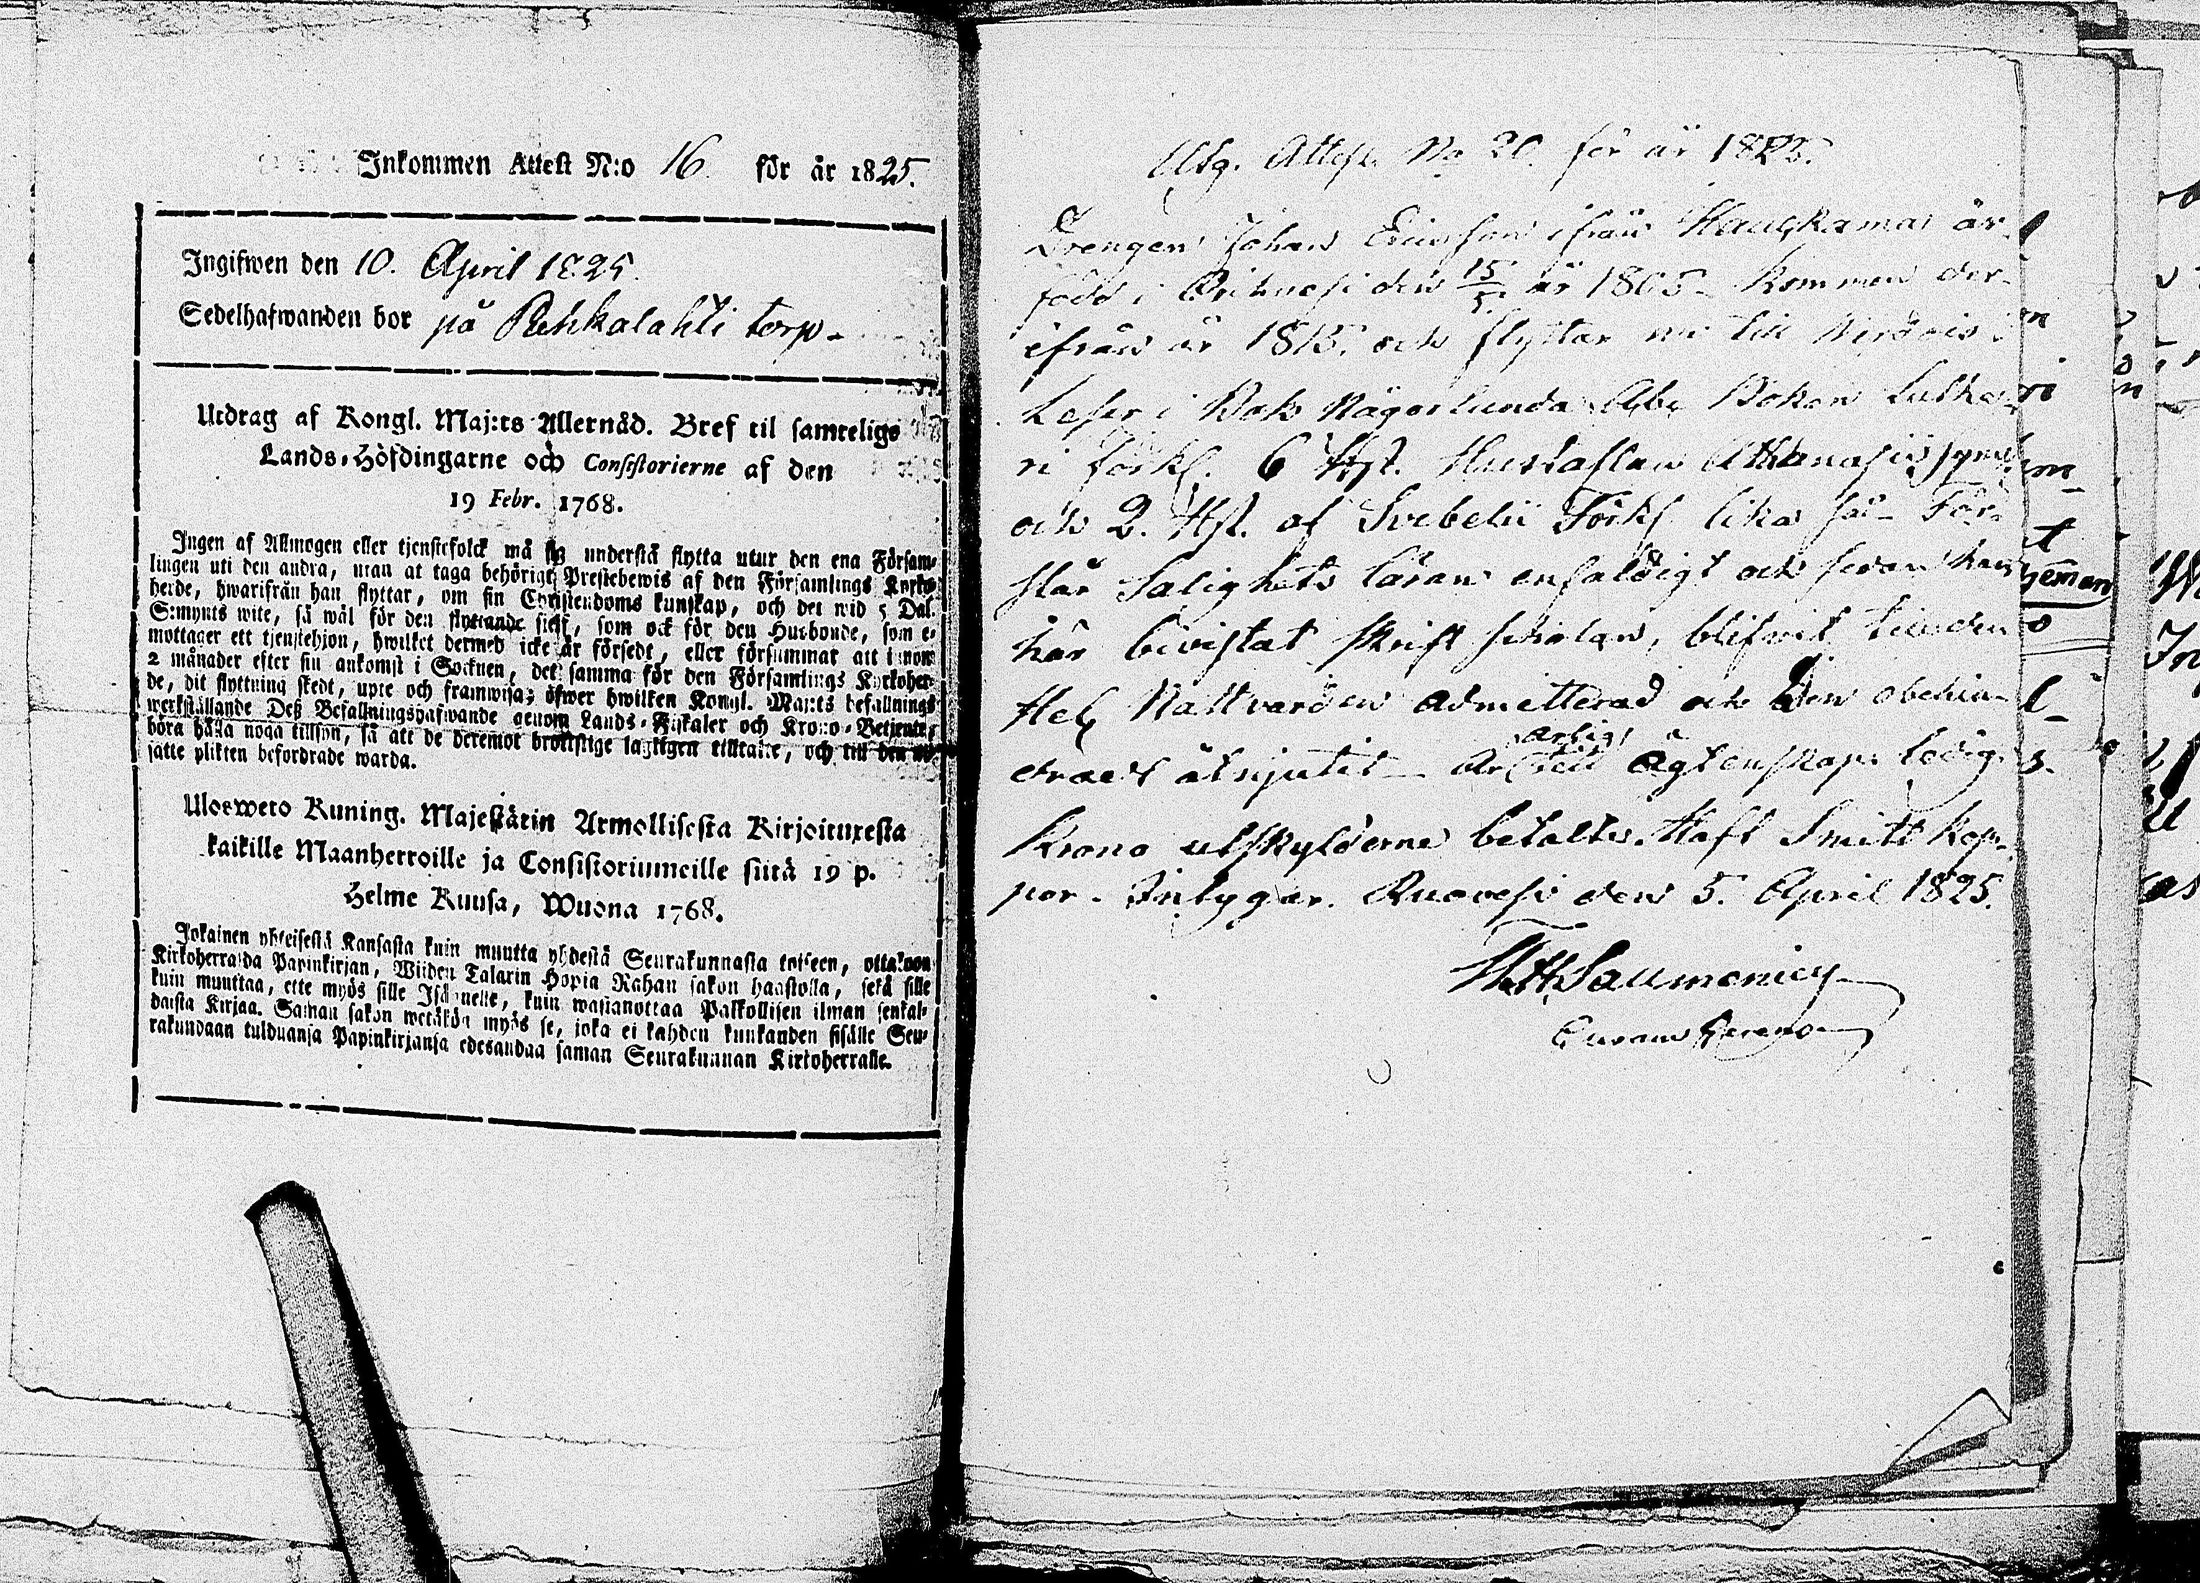 Inkommen Attest N:o 16. för år 1825.
Ingifwen den 10. April 1825.
Sedelhafwanden bor på Rehkalahti torp.
Utdrag af Kongl. Maj:ts Allernåd. Bref til samtelige
Lands-Höfdingarne och Consistorierne af den
19 Febr. 1768.
Ingen af Allmogen eller tjenstefolck må sig understå flytta utur den ena Försam-
lingen uti den andra, utan at taga behörigt Prestebewis af den Församlings Kyrko-
herde, hwarifrån han flyttar, om sin Christendoms kunskap, och det wid 5 Dal.
S:mynts wite, så wäl för den flyttande sielf, som ock för den Husbonde, som e-
mottager ett tjenstehjon, hwilket dermed icke är försedt, eller försummar att inom
2 månader efter sin ankomst i Socknen, det samma för den Församlings Kyrkoher-
de, dit flyttning skedt, upte och framwisa; öfwer hwilken Kongl. Maj:ts befallnings
werkställande Deß Befallningshafwande genom Lands-Fiskaler och Krono-Betjente,
böra hålla noga tillsyn, så att de deremot brottslige lagligen tilltalte, och till den ut-
satte plikten befordrade warda.
Ulosweto Kuning. Majestätin Armollisesta Kirjoituxesta
kaikille Maanherroille ja Consistoriumeille siitä 19 p.
Helme Kuusa, Wuona 1768.
Jokainen yhteisestä Kansasta kuin muutta yhdestä Seurakunnasta toiseen, ottakoon
Kirkoherralda Papinkirjan, Wiiden Talarin Hopia Rahan sakon haastolla, sekä sille
kuin muuttaa, ette myös sille Isännelle, kuin wastanottaa Palkollisen ilman senkal-
daista Kirjaa. Saman sakon wetäkön myös se, joka ei kahden kuukauden sisälle Seu-
rakundaan tulduansa Papinkirjansa edesandaa saman Seurakunnan Kirkoherralle.
Utg. Attest No 20. för år 1825.
Drengen Johan Ericsson ifrån Hauhkamaa är
född i Orihvesi den 15/5 år 1805 kommen der-
ifrån år 1815. och flyttar nu till
Läser i Bok någorlunda Abc Boken Luthe-
ri förkl. 6 Hst. Hustaflan Athanasii sym
och 2. Hst. af Svebelii Förkl lika så För-
står Salighets läran enfaldigt och sedan han
här bevistat Skrift scholan, blifvit till den
Hel. Nattvarden admitterad och den obehin-
drad åtnjutit Arbetar ärlig ägtenskaps ledig
Krono utskylderne betalte. Haft Smitt kop-
por. Intygar. Ruovesi den 5. April 1825.